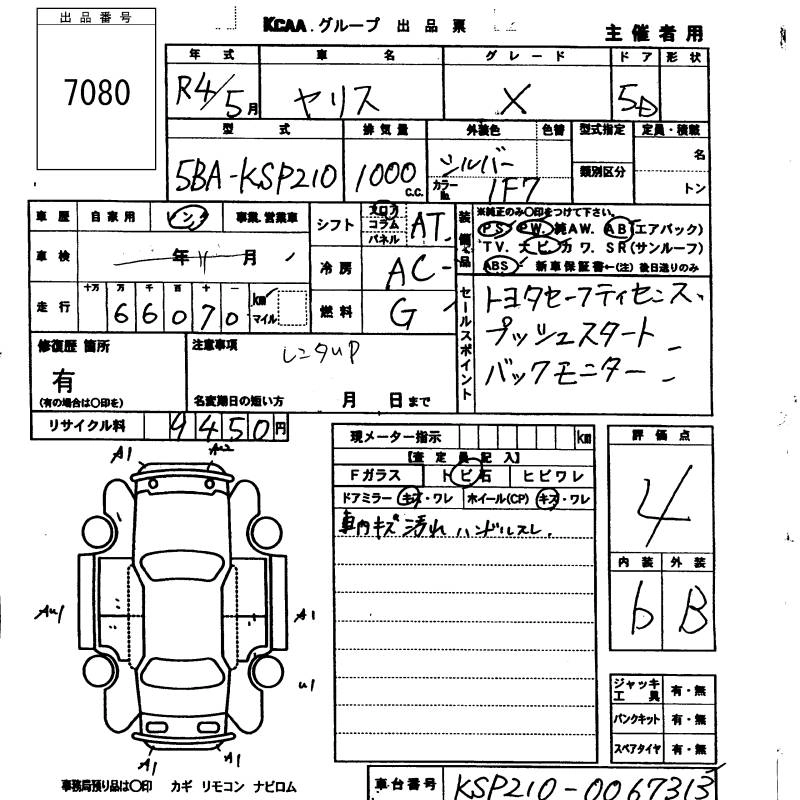 出品番号
7080
KCAA.グループ 出品票
主催者用
年式 車名 グレード ドア 形状
R4/5月 ヤリス X 5D
型式 排気量 外装色 色替 型式指定 定員・積載
5BA-KSP210 1000 c.c. シルバー カラーNo. 1F7 類別区分 名 トン
車歴 自家用 レンタ 事業.営業車
シフト フロア コラム パネル AT
装備品 ※純正のみ〇印をつけて下さい。
PS PW. 純AW. AB(エアバック)
TV. ナビ カワ. SR(サンルーフ)
ABS 新車保証書←(注)後日送りのみ
車検 年 月
冷房 AC
走行 十万 万 千 百 十 一
66070 km マイル
燃料 G
セールスポイント
トヨタセーフティセンス、
プッシュスタート
バックモニター
修復歴 箇所
有
(有の場合は〇印を)
注意事項
レンタUP
名変期日の短い方 月 日まで
リサイクル料 9450円
現メーター指示 km
【査定員記入】
Fガラス トビ石 ヒビワレ
ドアミラー キズ・ワレ ホイール(CP) キズ・ワレ
車内キズ 汚れ ハンドルスレ.
評価点
4
内装 外装
b B
A1
AU2
AU1
A1
U1
A1
A1
ジャッキ工具 有・無
パンクキット 有・無
スペアタイヤ 有・無
事務局預り品は〇印 カギ リモコン ナビロム
車台番号 KSP210-0067313